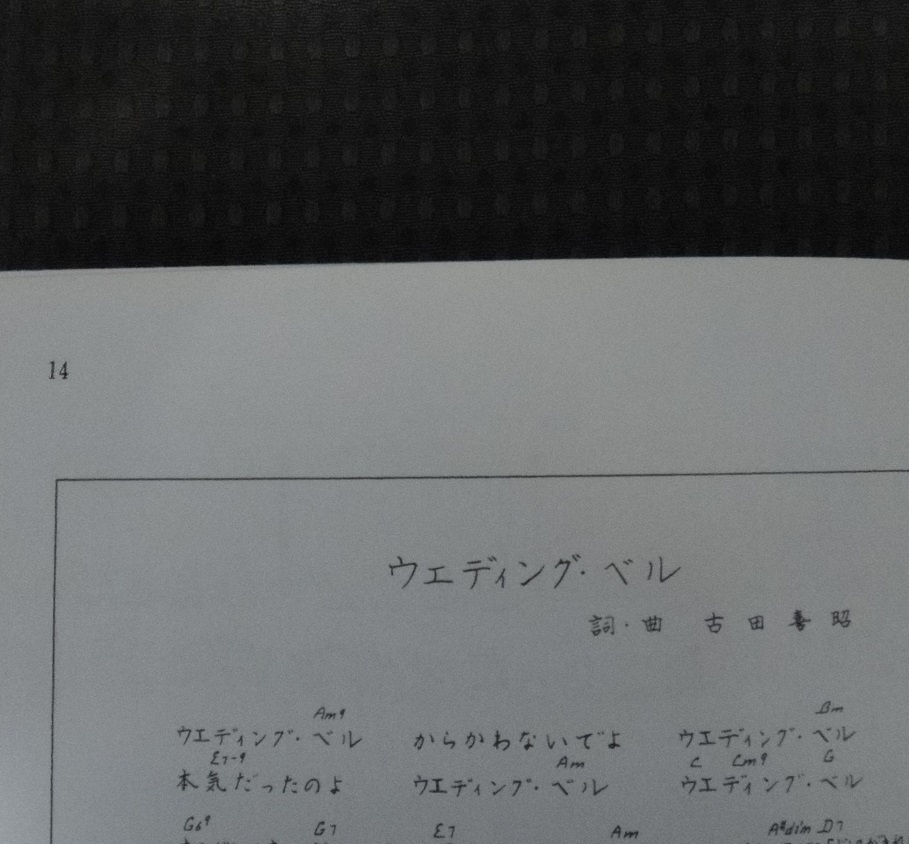 14
ウエディング・ベル
詞・曲 古田喜昭
Am9 Bm
ウエディング・ベル からかわないでよ ウエディング・ベル
E7-9 Am C Cm9 G
本気だったのよ ウエディング・ベル ウエディング・ベル
G69 G7 E7 Am A#dim D7